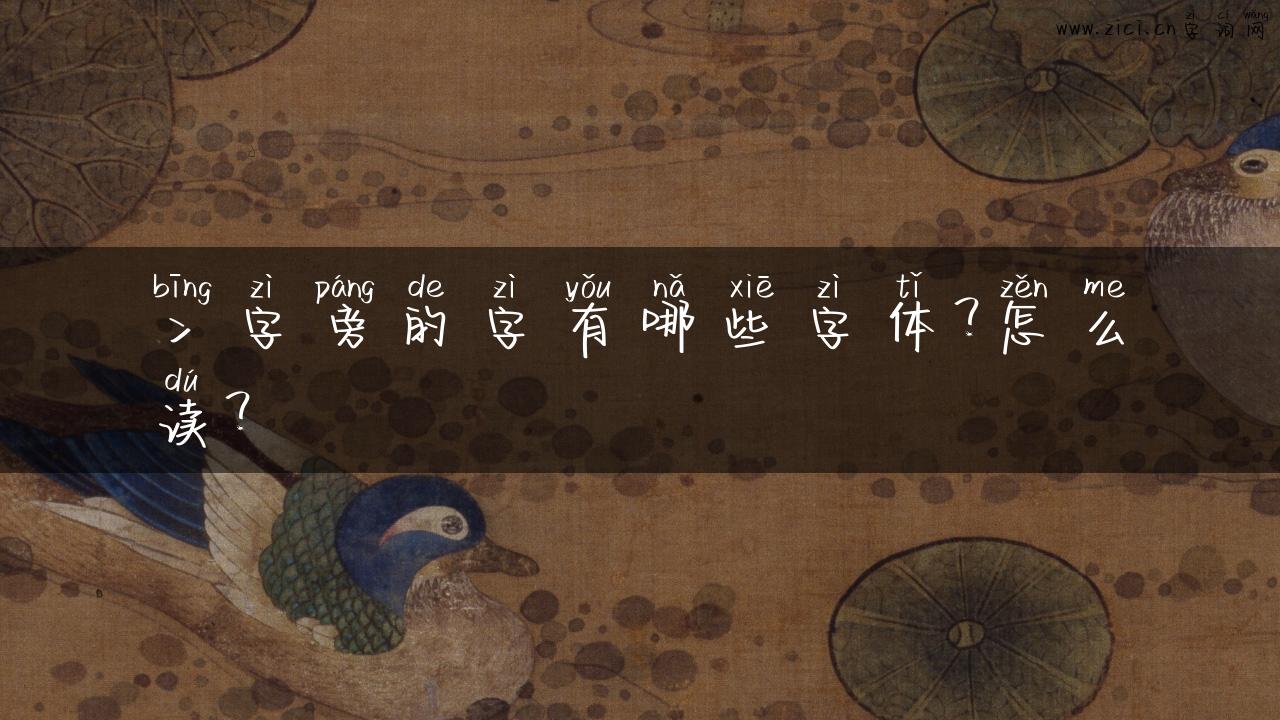 zì cí wǎng
www.zici.cn 字 词 网
bīng zì páng de zì yǒu nǎ xiē zì tǐ zěn me
冫 字 旁 的 字 有 哪 些 字 体 ？ 怎 么
dú
读 ？